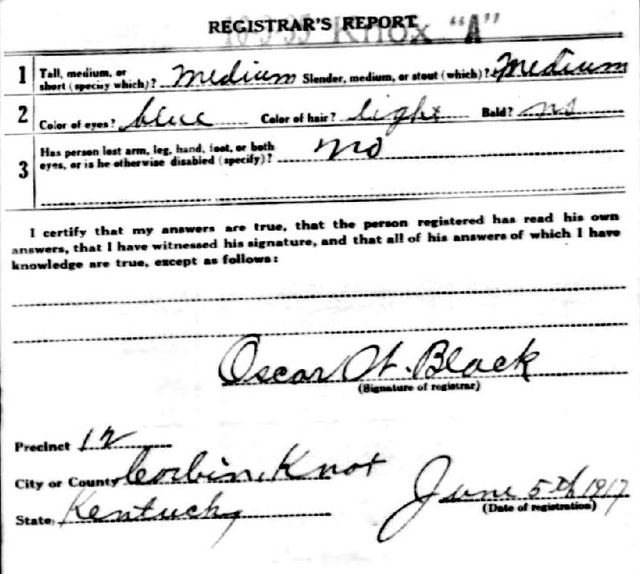 REGISTRAR'S REPORT
Knox "A"
1 Tall, medium, or short (specify which)? Medium Slender, medium, or stout (which)? Medium
2 Color of eyes? blue Color of hair? light Bald? no
3 Has person lost arm, leg, hand, foot, or both eyes, or is he otherwise disabled (specify)? no
I certify that my answers are true, that the person registered has read his own
answers, that I have witnessed his signature, and that all of his answers of which I have
knowledge are true, except as follows:
Oscar W. Black
(Signature of registrar)
Precinct 12
City or County Corbin, Knox
State Kentucky
June 5th 1917
(Date of registration)